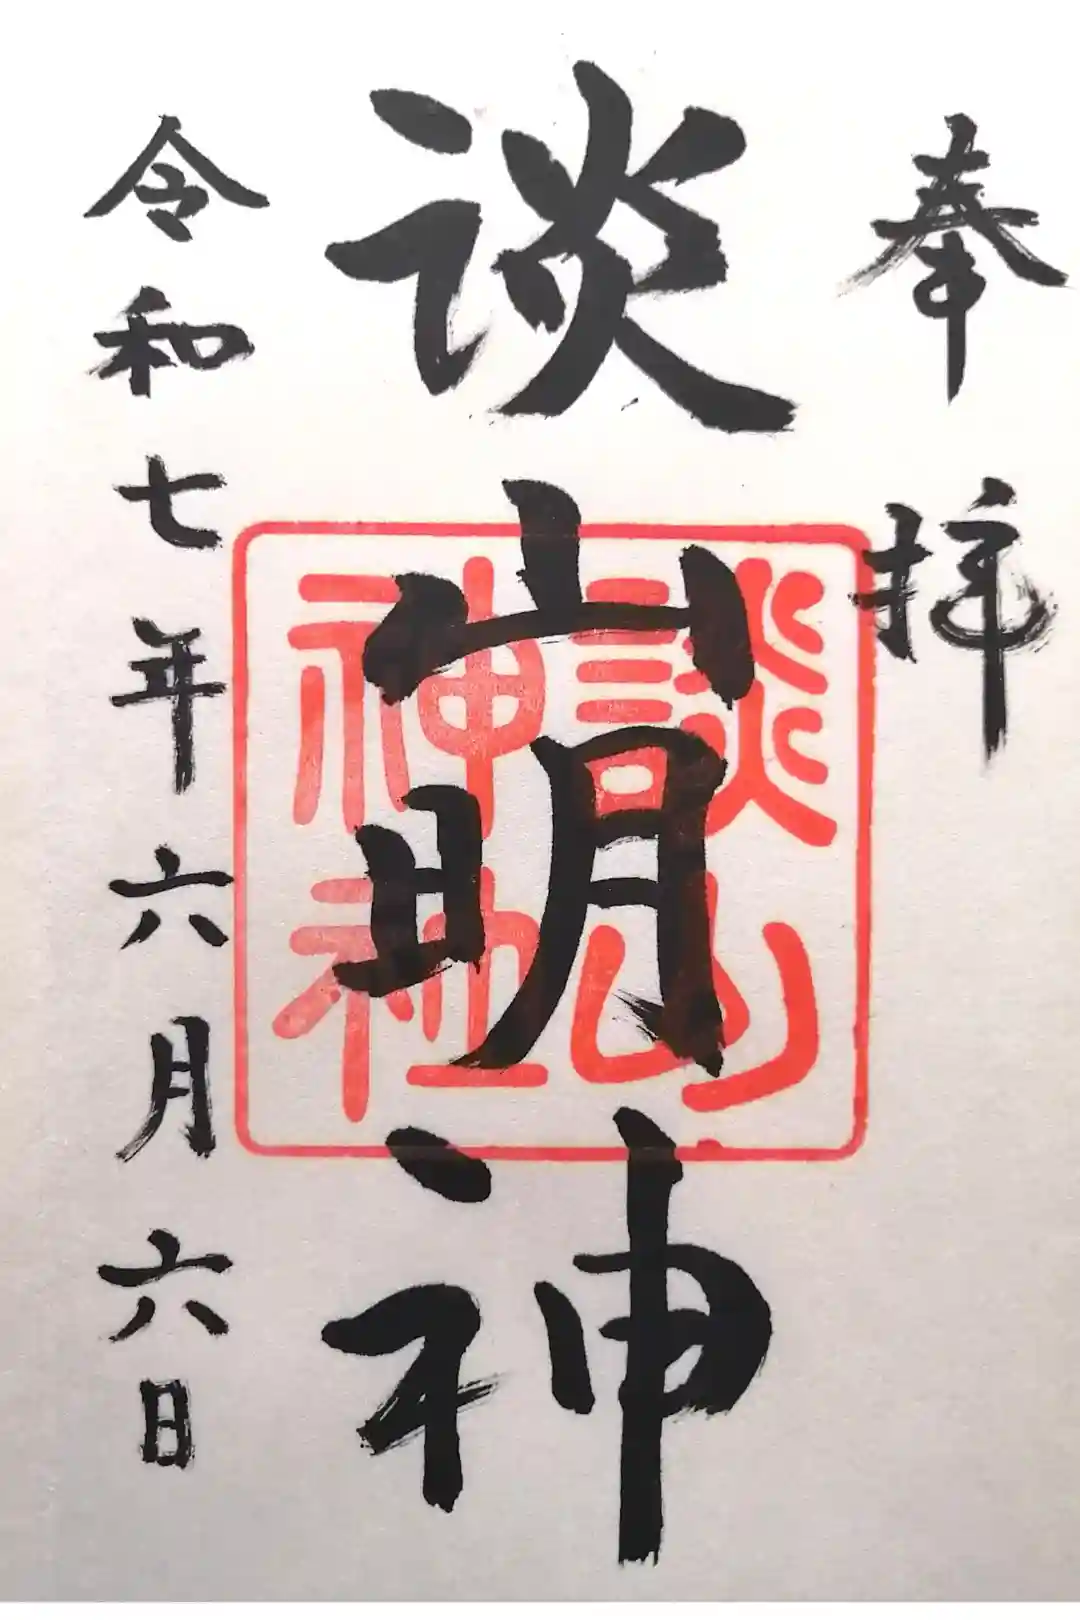 奉拝
談山明神
談山
神社
令和七年六月六日